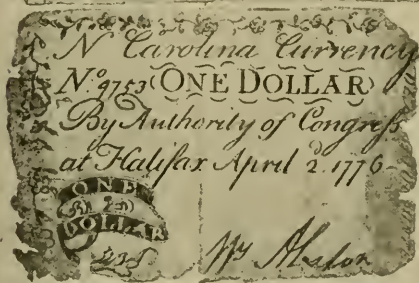 N Carolina Currency
No. 9753 (ONE DOLLAR)
By Authority of Congress
at Halifax April 2d. 1776
ONE
DOLLAR
Wm Alston